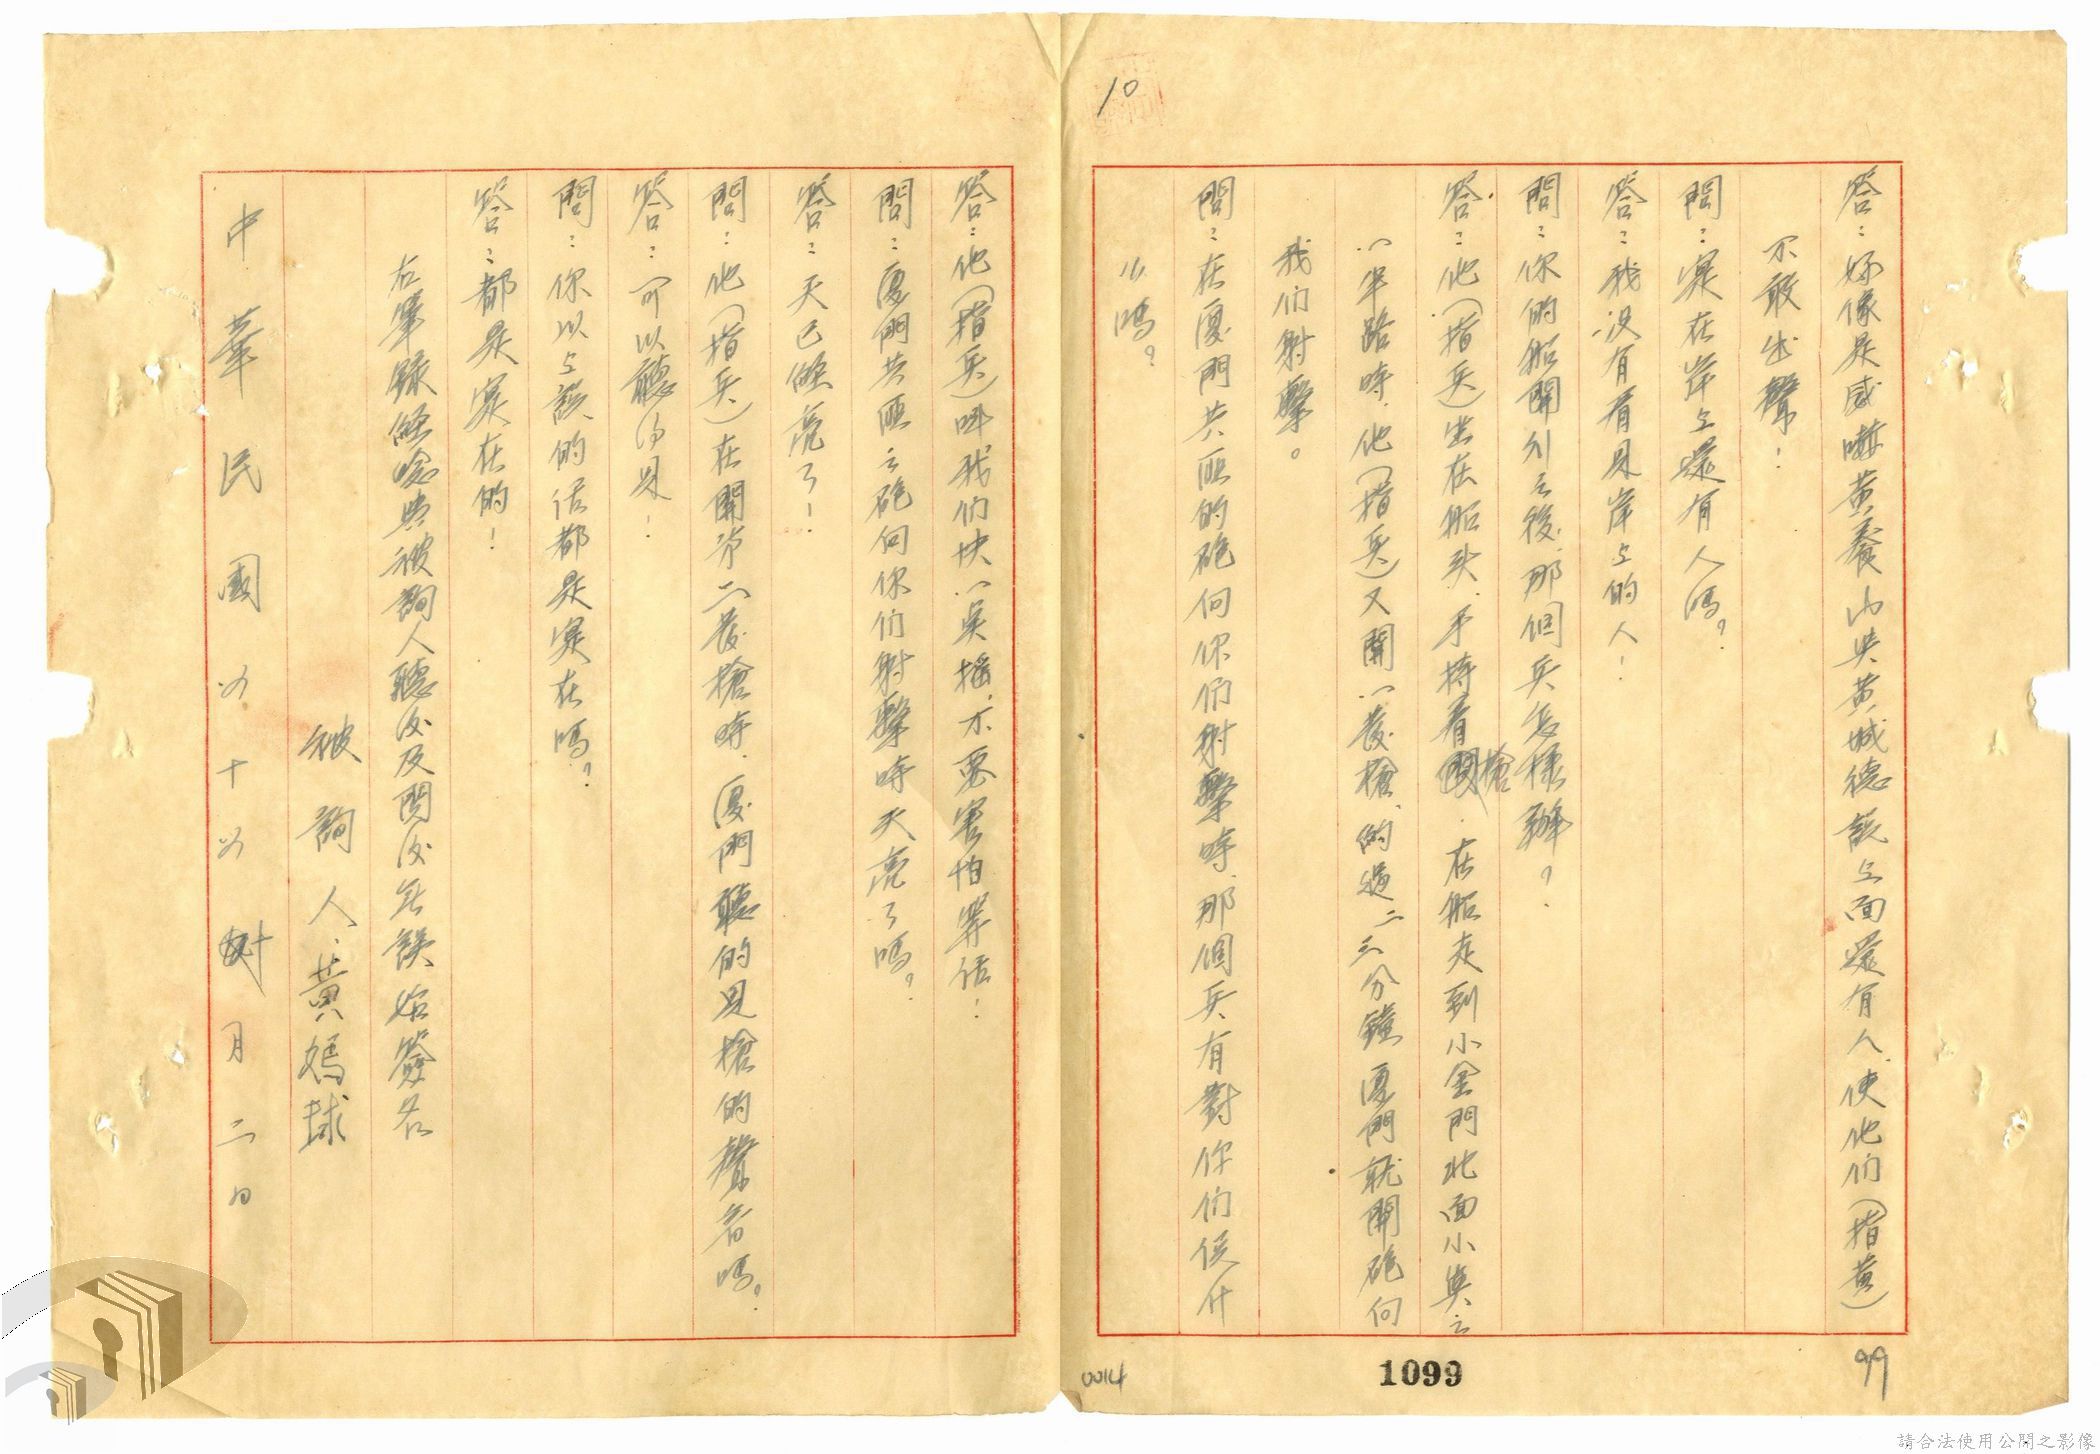 10
答：好像是感嚇黃養山與黃城德説上面還有人使他们（指黃）
不敢出聲！
問：實在岸上還有人嗎？
答：我没有看見岸上的人！
問：你的船開列之後，那個兵怎樣辦？
答：他（指兵）坐在船头，手持着槍，在船走到小金門北面小與之
一半路時，他（指兵）又開一發槍，約過二三分鐘厦門就開砲向
我们射擊。
問：在厦門共匪的砲向你们射擊時，那個兵有對你们使什
么嗎？
答：他（指兵）叫我们快一臭摇，不要害怕等话！
問：厦門共匪之砲向你们射擊時天亮了嗎？
答：天已經亮了！
問：他（指兵）在開第二發槍時，厦門聽的見槍的聲音嗎？
答：可以聽得見！
問：你以上説的话都是实在嗎？
答：都是实在的！
右筆錄經唸與被詢人聽後及閱後無誤始簽名
被詢人黃媽球
中華民國四十四年月二日
99
1099
0014
請合法使用公開之影像